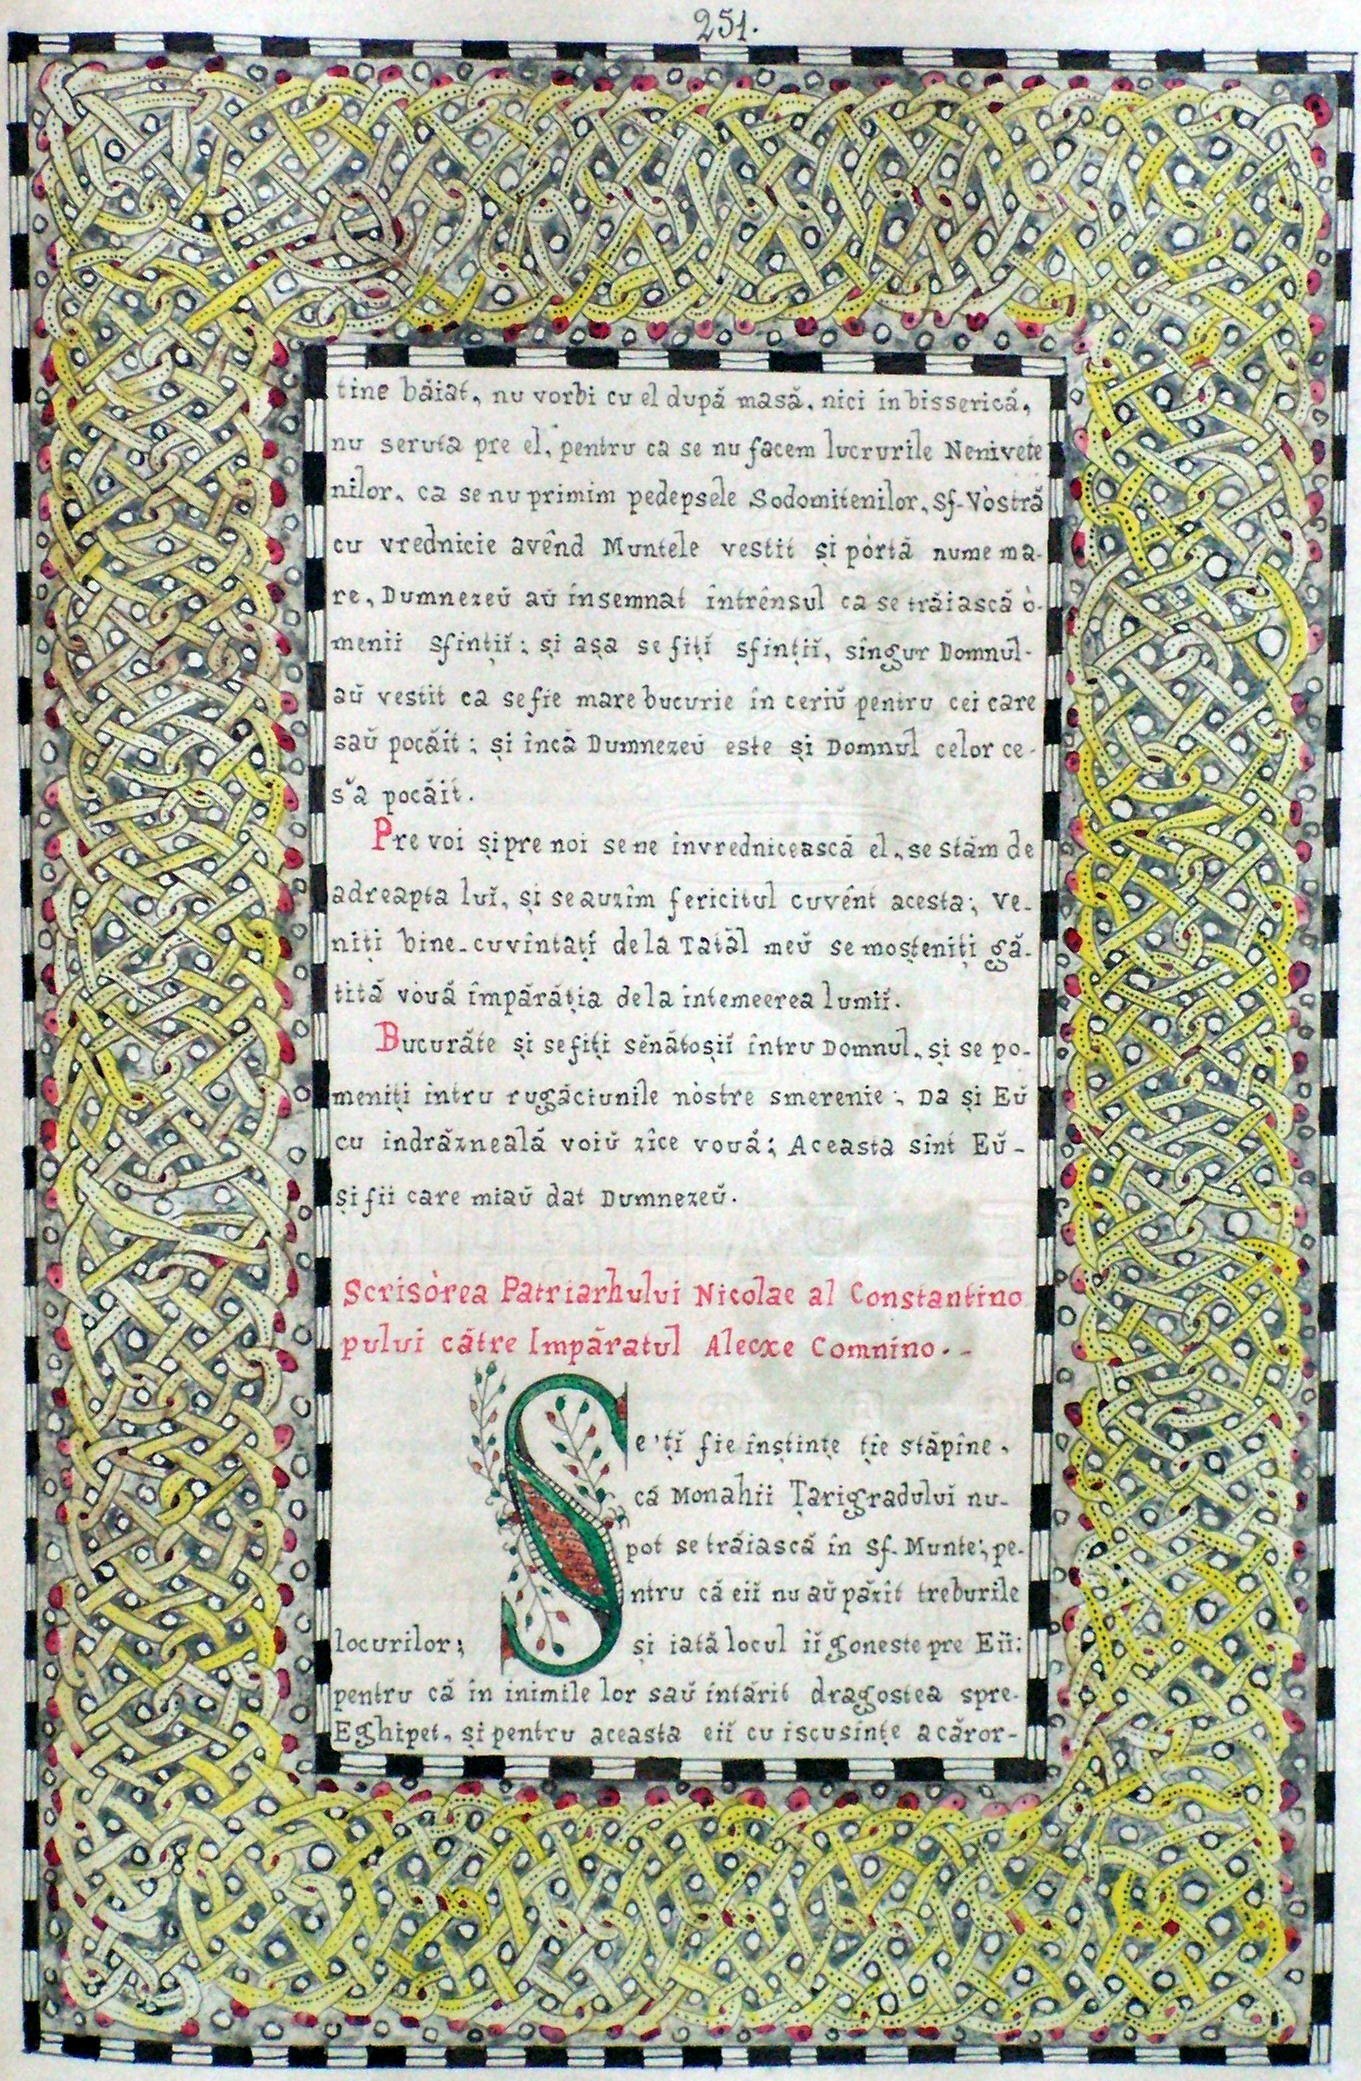 251.
tine băiat, nu vorbi cu el după masă, nici în bisserică,
nu seruta pre el, pentru ca se nu facem lucrurile Nenivete
nilor, ca se nu primim pedepsele Sodomitenilor, Sf. Vòstră
cu vrednicie avênd Muntele vestit și pòrtă nume ma-
re, Dumnezeŭ aŭ însemnat întrênsul ca se trăiască ò-
menii sfințiĭ; și așa se fițĭ sfințiĭ, sîngur Domnul-
aŭ vestit ca se fie mare bucurie în ceriŭ pentru cei care
saŭ pocăit; și încă Dumnezeŭ este și Domnul celor ce-
s'a pocăit.
Pre voi și pre noi se ne învrednicească el, se stăm de
adreapta luĭ, și se auzîm fericitul cuvênt acesta; Ve-
niți bine-cuvîntațĭ de la Tatăl meŭ se moșteniți gă-
tită vouă împărăția de la întemeerea lumiĭ.
Bucurăte și se fiți sĕnătoșiĭ întru Domnul, și se po-
meniți întru rugăciunile nòstre smerenie; Da și Eŭ
cu îndrăzneală voiŭ zîce vouă; Aceasta sînt Eŭ-
și fii care miaŭ dat Dumnezeŭ.
Scrisòrea Patriarhului Nicolae al Constantino
pului către Împăratul Alecxe Comnino.-
Se'țĭ fie înștințe ție stăpîne,
că Monahii Țarigradului nu-
pot se trăiască în Sf. Munte; pe-
ntru că eiĭ nu aŭ părit treburile
locurilor; și iată locul îĭ gonește pre Eiĭ;
pentru că în inimile lor saŭ întărit dragostea spre-
Eghipet, și pentru aceasta eiĭ cu iscusințe a căror-